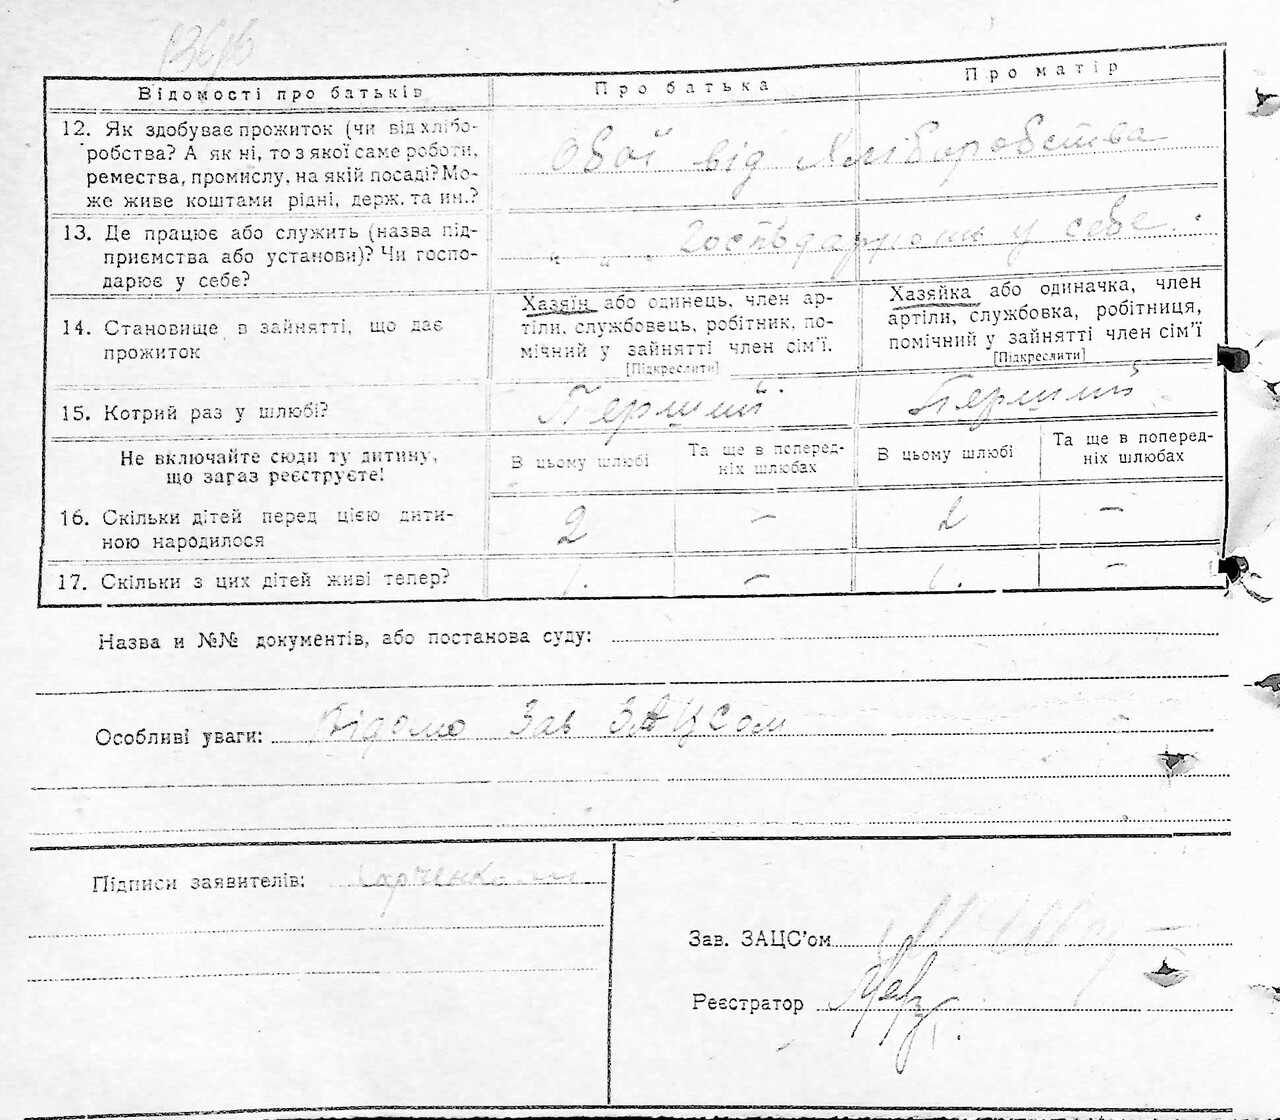 136/6
Відомості про батьків
Про батька
Про матір
12. Як здобуває прожиток (чи від хлібо-
робства? А як ні, то з якої саме роботи,
ремества, промислу, на якій посаді? Мо-
же живе коштами рідні, держ. та ин.?
Обої від Хліборобства
13. Де працює або служить (назва під-
приємства або установи)? Чи госпо-
дарює у себе?
" " " Господарюють у себе.
14. Становище в зайнятті, що дає
прожиток
Хазяїн або одинець, член ар-
тіли, службовець, робітник, по-
мічний у зайнятті член сім'ї.
[Підкреслити]
Хазяйка або одиначка, член
артіли, службовка, робітниця,
помічний у зайнятті член сім'ї
[Підкреслити]
15. Котрий раз у шлюбі?
Перший
Перший
Не включайте сюди ту дитину,
що загаз реєструєте!
В цьому шлюбі
Та ще в поперед-
ніх шлюбах
В цьому шлюбі
Та ще в поперед-
ніх шлюбах
16. Скільки дітей перед цією дити-
ною народилося
2
–
2
–
17. Скільки з цих дітей живі тепер?
1.
–
1.
–
Назва и №№ документів, або постанова суду:
Особливі уваги: Відомо Зав ЗАЦСом
Підписи заявителів: Харченко
Зав. ЗАЦС'ом
Реєстратор